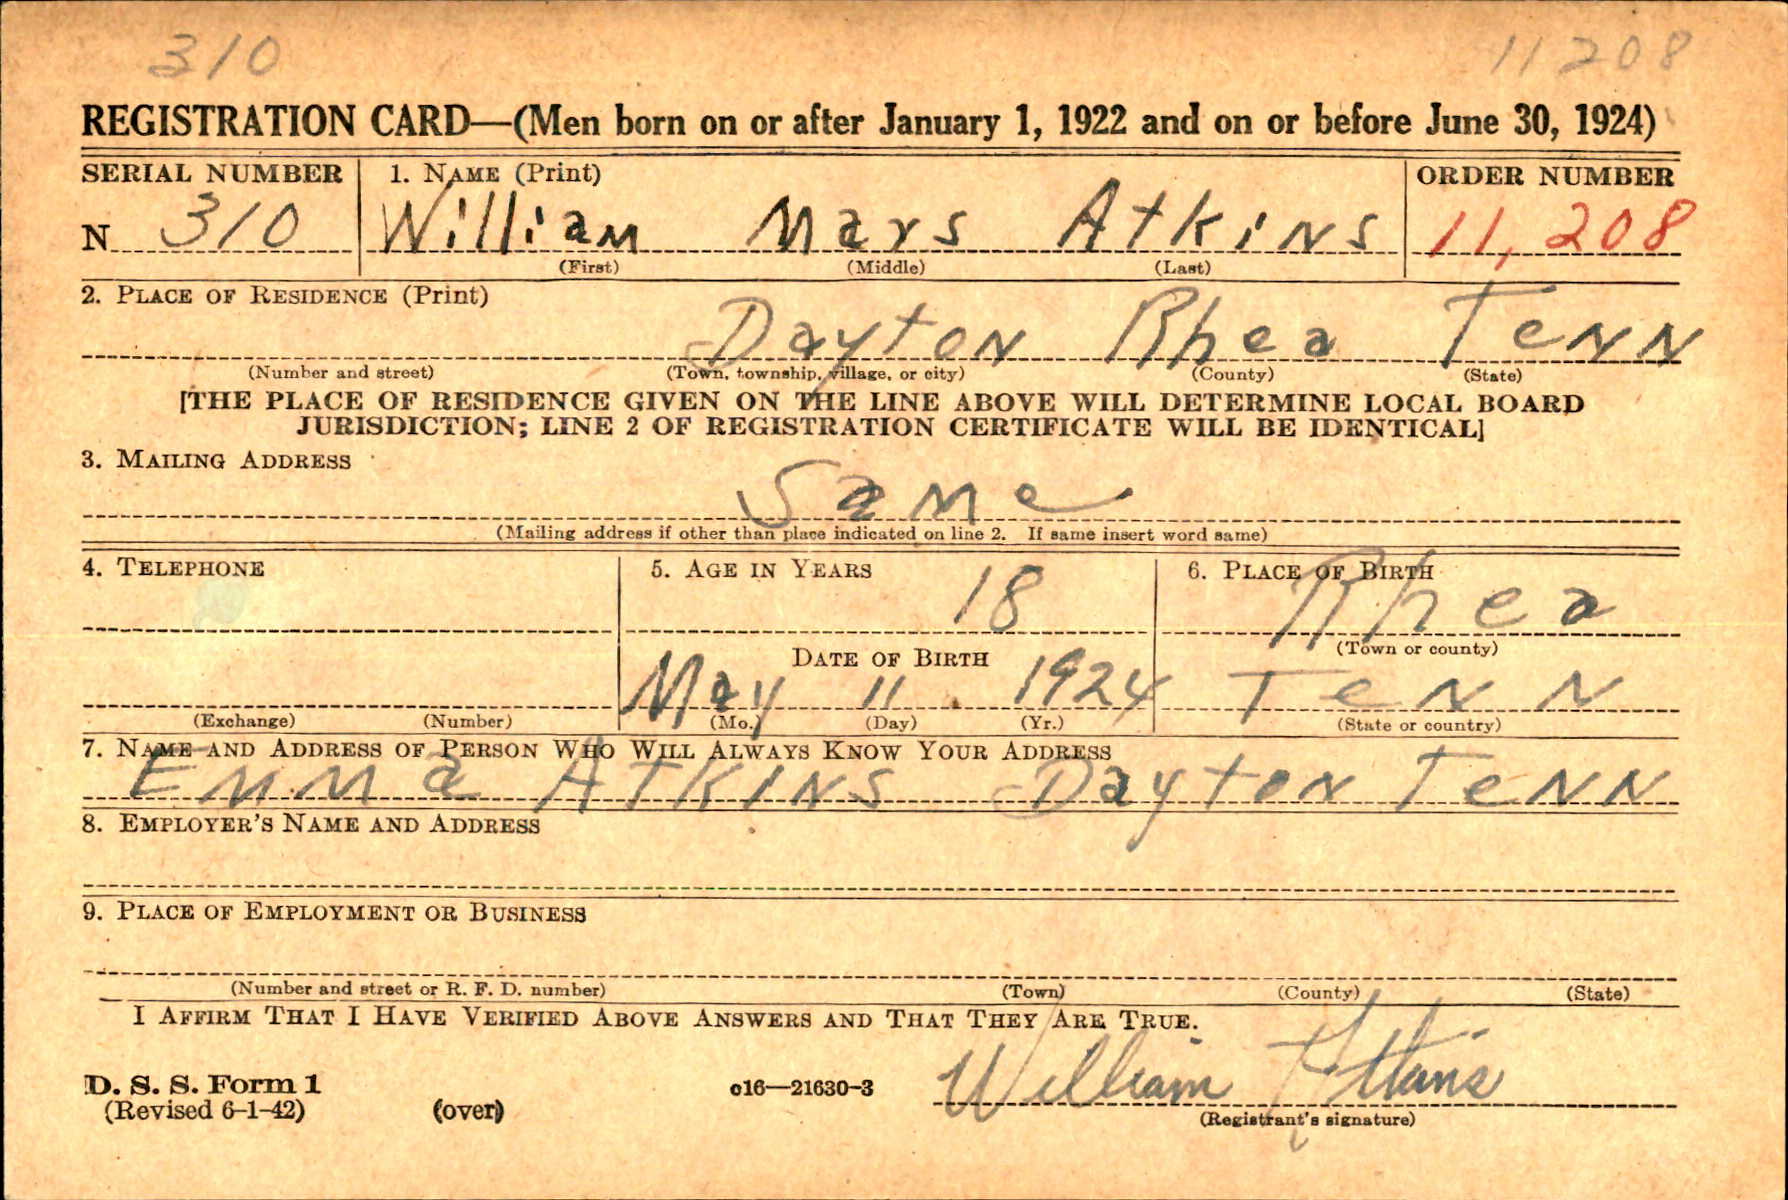 310 11208
REGISTRATION CARD—(Men born on or after January 1, 1922 and on or before June 30, 1924)
SERIAL NUMBER 1. NAME (Print) ORDER NUMBER
N 310 William Mars Atkins 11,208
(First) (Middle) (Last)
2. PLACE OF RESIDENCE (Print)
Dayton Rhea Tenn
(Number and street) (Town, township, village, or city) (County) (State)
[THE PLACE OF RESIDENCE GIVEN ON THE LINE ABOVE WILL DETERMINE LOCAL BOARD
JURISDICTION; LINE 2 OF REGISTRATION CERTIFICATE WILL BE IDENTICAL]
3. MAILING ADDRESS
Same
(Mailing address if other than place indicated on line 2. If same insert word same)
4. TELEPHONE 5. AGE IN YEARS 6. PLACE OF BIRTH
18 Rhea
(Town or county)
DATE OF BIRTH
May 11 1924 Tenn
(Exchange) (Number) (Mo.) (Day) (Yr.) (State or country)
7. NAME AND ADDRESS OF PERSON WHO WILL ALWAYS KNOW YOUR ADDRESS
Emma Atkins Dayton Tenn
8. EMPLOYER'S NAME AND ADDRESS
9. PLACE OF EMPLOYMENT OR BUSINESS
(Number and street or R. F. D. number) (Town) (County) (State)
I AFFIRM THAT I HAVE VERIFIED ABOVE ANSWERS AND THAT THEY ARE TRUE.
D. S. S. Form 1 c16—21630-3 William Atkins
(Revised 6-1-42) (over) (Registrant's signature)